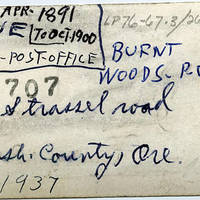 APR. 1891
VE TO OCT. 1900
-POST-OFFICE
LP76-67.3/26
BURNT
WOODS-R
707
Strassel road
sh. County, Ore.
1937